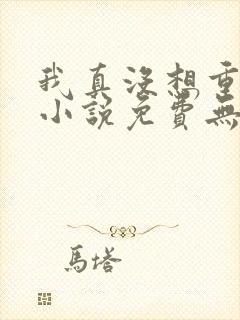 我真沒想重
小說免費無
馬塔